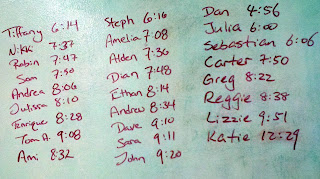 Tiffany 6:14
Nikki 7:37
Robin 7:47
Sam 7:50
Andrea 8:06
Julissa 8:10
Enrique 8:28
Tom A. 9:08
Ami 8:32
Steph 6:16
Amelia 7:08
Alden 7:36
Dian 7:48
Ethan 8:14
Andrew 8:34
Dave 9:10
Sara 9:11
John 9:20
Dan 4:56
Julia 6:00
Sebastian 6:06
Carter 7:50
Greg 8:22
Reggie 8:38
Lizzie 9:51
Katie 12:29